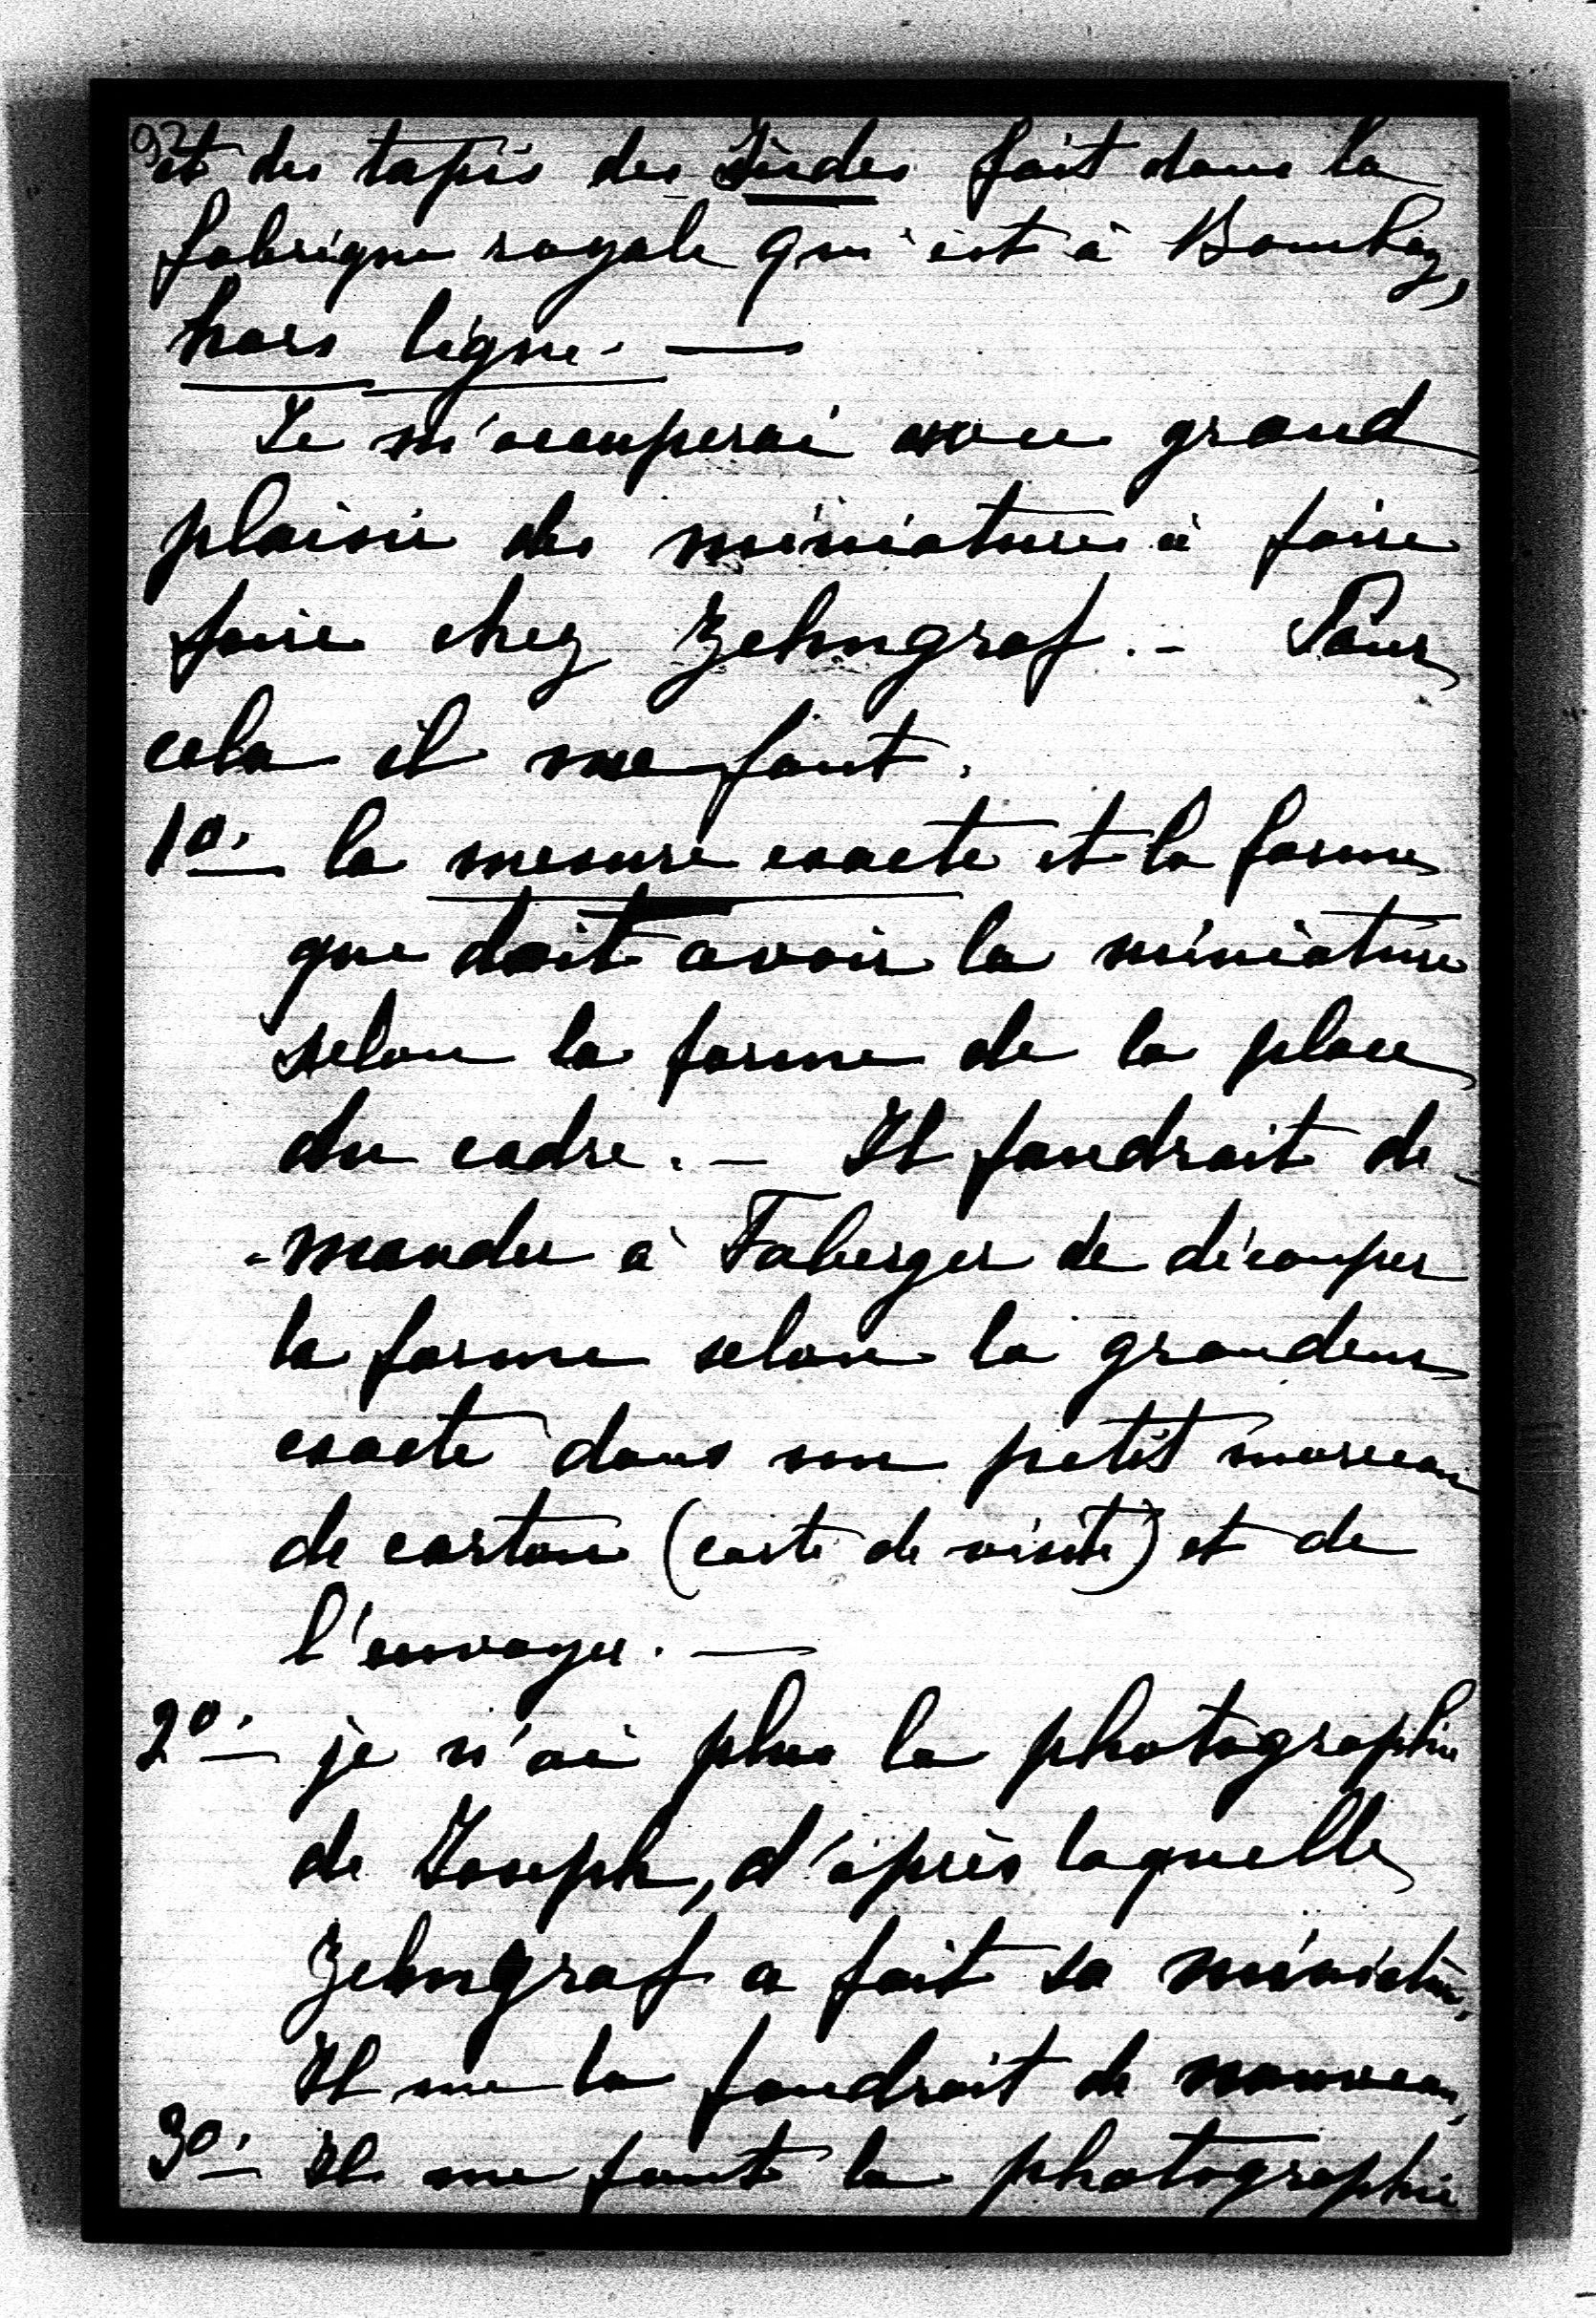 92
et des tapis des Indes fait dans la
fabrique royale qui est à Bombay,
hors ligne. —
Je m'occuperai avec grand
plaisir des miniatures à faire
faire chez Zehngraf. — Pour
cela il me faut.
1º. la mesure exacte et la forme
que doit avoir la miniature
selon la forme de la place
du cadre. — Il faudrait de-
-mander à Faberger de découper
la forme selon la grandeur
exacte dans un petit morceau
de carton (carte de visite) et de
l'envoyer. —
2º. je n'ai plus la photographie
de Joseph, d'après laquelle
Zehngraf a fait sa miniature,
Il me la faudrait de nouveau,
3º. Il me faut la photographie